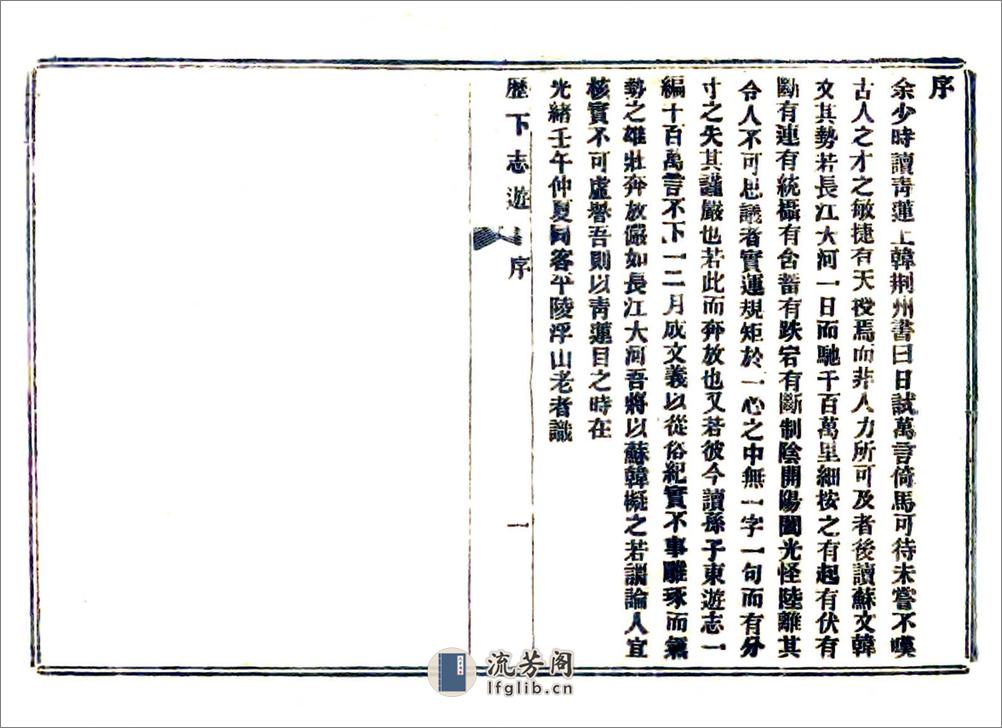 序
余少時讀靑蓮上韓荆州書曰日試萬言倚馬可待未嘗不嘆
古人之才之敏捷有天授焉而非人力所可及者後讀蘇文韓
文其勢若長江大河一日而馳千百萬里細按之有起有伏有
斷有連有統攝有含蓄有跌宕有斷制陰開陽闔光怪陸離其
令人不可思議者實運規矩於一心之中無一字一句而有分
寸之失其謹嚴也若此而奔放也又若彼今讀孫子東遊志一
編十百萬言不下一二月成文義以從俗紀實不事雕琢而氣
勢之雄壯奔放儼如長江大河吾將以蘇韓擬之若謂論人宜
核實不可虛譽吾則以靑蓮目之時在
光緒壬午仲夏同客平陵浮山老者識
歷下志遊
序
一
流芳阁
lfglib.cn